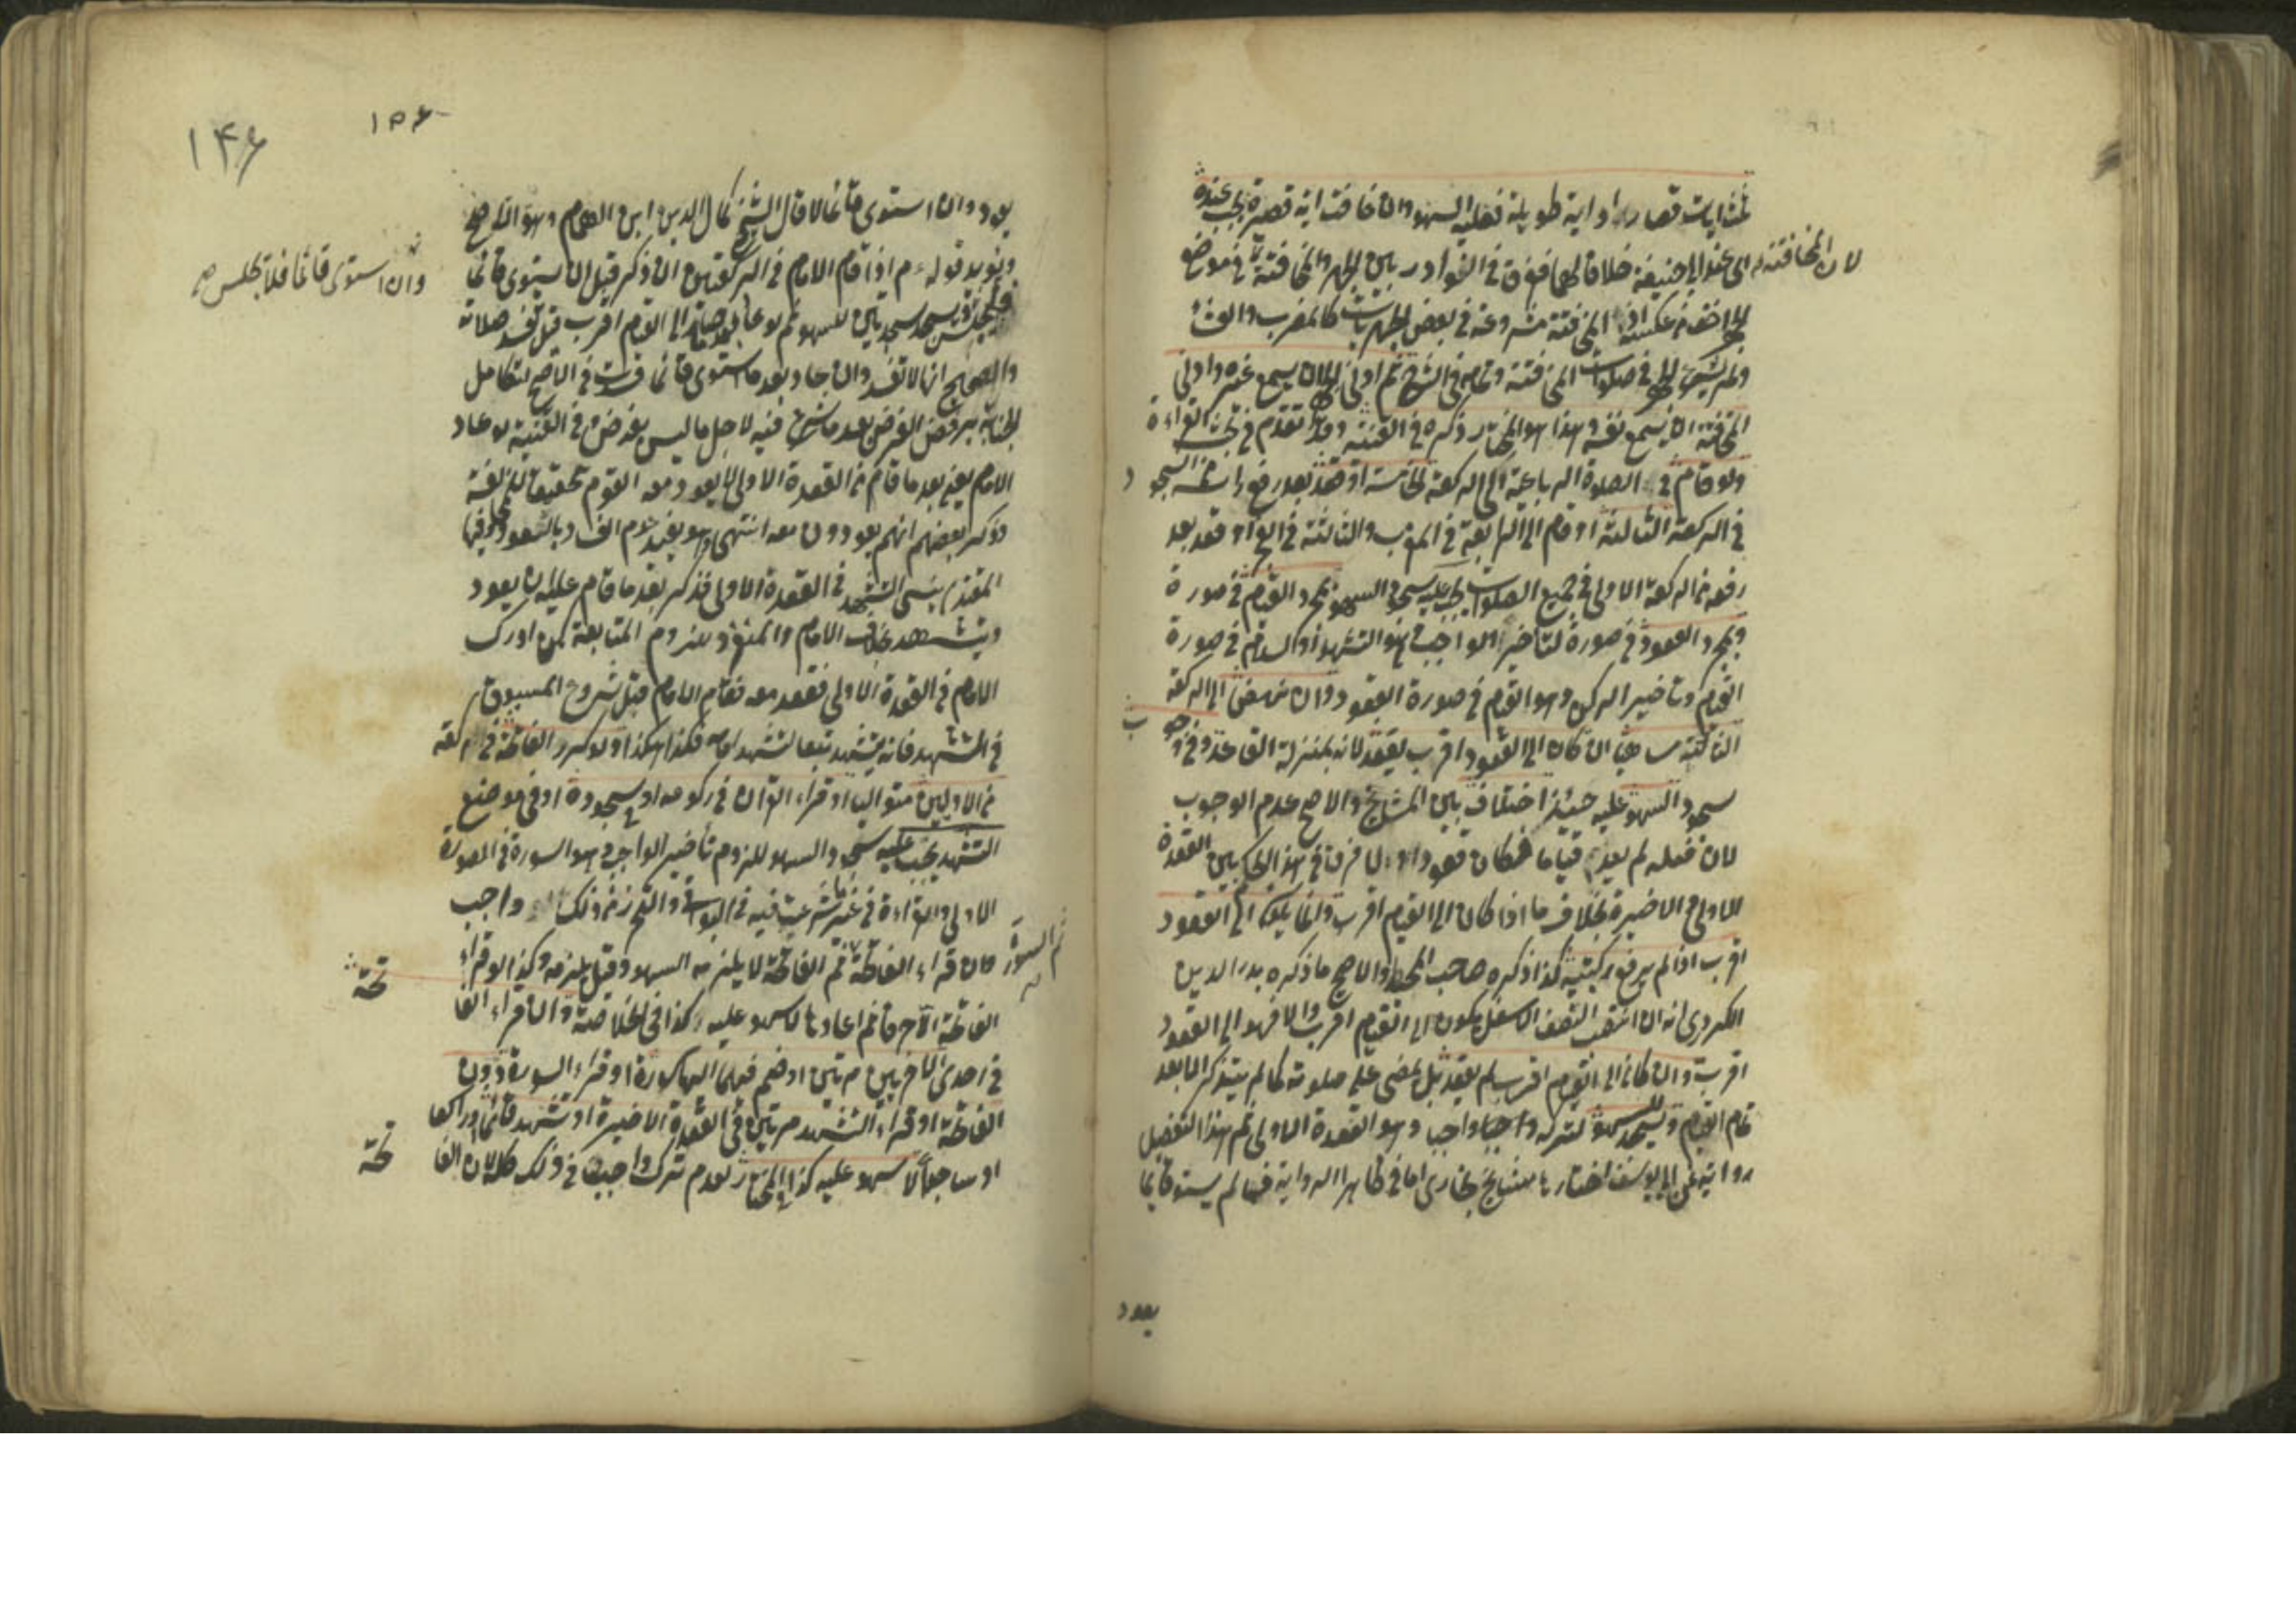 ثلث ايات قصار او اية طويلة فعليه السهو وان خافت اية قصيرة يجب عنده
اى عند ابى حنيفة خلافا لهما ففرق فى النوادر بين الجهر والمخافتة فى موضع
لان المخافتة
المخافتة مشروعة فى بعض الجهريات كالمغرب والعشاء
ولم يشرع الجهر فى صلوات المخافتة وتمامه فى الشرح ثم ادنى الجهر ان يسمع غيره وادنى
المخافتة ان يسمع نفسه هذا هو المختار ذكره فى القنية وقد تقدم فى بحث القراءة
ولو قام فى الصلوة الرباعية الى الركعة الخامسة او قعد بعد رفع راسه من السجود
فى الركعة الثالثة او قام الى الرابعة فى المغرب والثالثة فى الفجر او قعد بعد
رفعه من الركعة الاولى فى جميع الصلوات يجب عليه سجود السهو بمجرد القيام فى صورة
وبمجرد القعود فى صورة لتأخير الواجب وهو التشهد او السلام فى صورة
القيام وتاخير الركن وهو القيام فى صورة القعود وان نهض الى الركعة
الثالثة ساهيا ان كان الى القعود اقرب يقعد لانه بمنزلة القاعد وفى وجوب
سجود السهو عليه حينئذ اختلاف بين المشايخ والاصح عدم الوجوب
لان فعله لم يعد قياما فكان قعودا ولا فرق فى هذا الحكم بين القعدة
الاولى والاخيرة بخلاف ما اذا كان الى القيام اقرب وانما يكون الى القعود
اقرب اذا لم يرفع ركبتيه كذا ذكره صاحب المحيط والاصح ما ذكره بدر الدين
الكردرى انه ان انتصب النصف الاسفل يكون الى القيام اقرب والا فهو الى القعود
اقرب وان كان الى القيام اقرب لم يقعد بل يمضى على صلوته كما لم يتذكر الا بعد
تمام القيام ويسجد للسهو لتركه واجبا وهو القعدة الاولى ثم هذا التفصيل
رواية عن ابى يوسف اختارها مشايخ بخارى اما فى ظاهر الرواية فما لم يستو قائما
يعود
١۴۶
١۵۶
يعود وان استوى قائما لا قال الشيخ كمال الدين ابن الهمام وهو الاصح
ويؤيده قوله ءم اذا قام الامام فى الركعتين ان ذكر قبل ان يستوى قائما
وان استوى قائما فلا يجلس
فليجلس ويسجد سجدتى السهو ثم لو عاد بعد ما صار الى القيام اقرب قيل تفسد صلاته
والصحيح انها لا تفسد وان عاد بعد ما استوى قائما فسدت فى الاصح لتكامل
الجناية برفض الفرض بعد ما شرع فيه لاجل ما ليس بفرض وفى القنية لو عاد
الامام يعنى بعد ما قام من القعدة الاولى لا يعود معه القوم تحقيقا للمخالفة
وذكر بعضهم انهم يعودون معه انتهى وهو يفيد عدم الفساد بالعود وفيها
المقتدى نسى التشهد فى القعدة الاولى فذكر بعد ما قام عليه ان يعود
ويتشهد بخلاف الامام والمنفرد للزوم المتابعة كمن ادرك
الامام فى القعدة الاولى فقعد معه فقام الامام قبل شروع المسبوق
فى التشهد فانه يتشهد تبعا لتشهد امامه فكذا هذا ولو كرر الفاتحة فى ركعة
من الاوليين متواليا او قراء القرآن فى ركوعه او سجوده او فى موضع
التشهد يجب عليه سجود السهو للزوم تأخير الواجب وهو السورة فى الصورة
الاولى والقراءة فى غير ما شرعت فيه فى البواقى والتحرز عن ذلك واجب
وان قراء الفاتحة ثم السورة ثم الفاتحة لا يلزمه السهو وقيل يلزمه وكذا لو قراء
الفاتحة الا حرفا ثم اعادها لا سهو عليه كذا فى الخلاصة وان قراء الفا
تحة
فى احدى الاخريين مرتين او ضم فيهما اليها سورة او قراء السورة دون
الفاتحة او قراء التشهد مرتين فى القعدة الاخيرة او تشهد قائما او راكعا
او ساجدا لا سهو عليه كذا فى المختار لعدم ترك واجب فى ذلك كله لان الفا
تحة